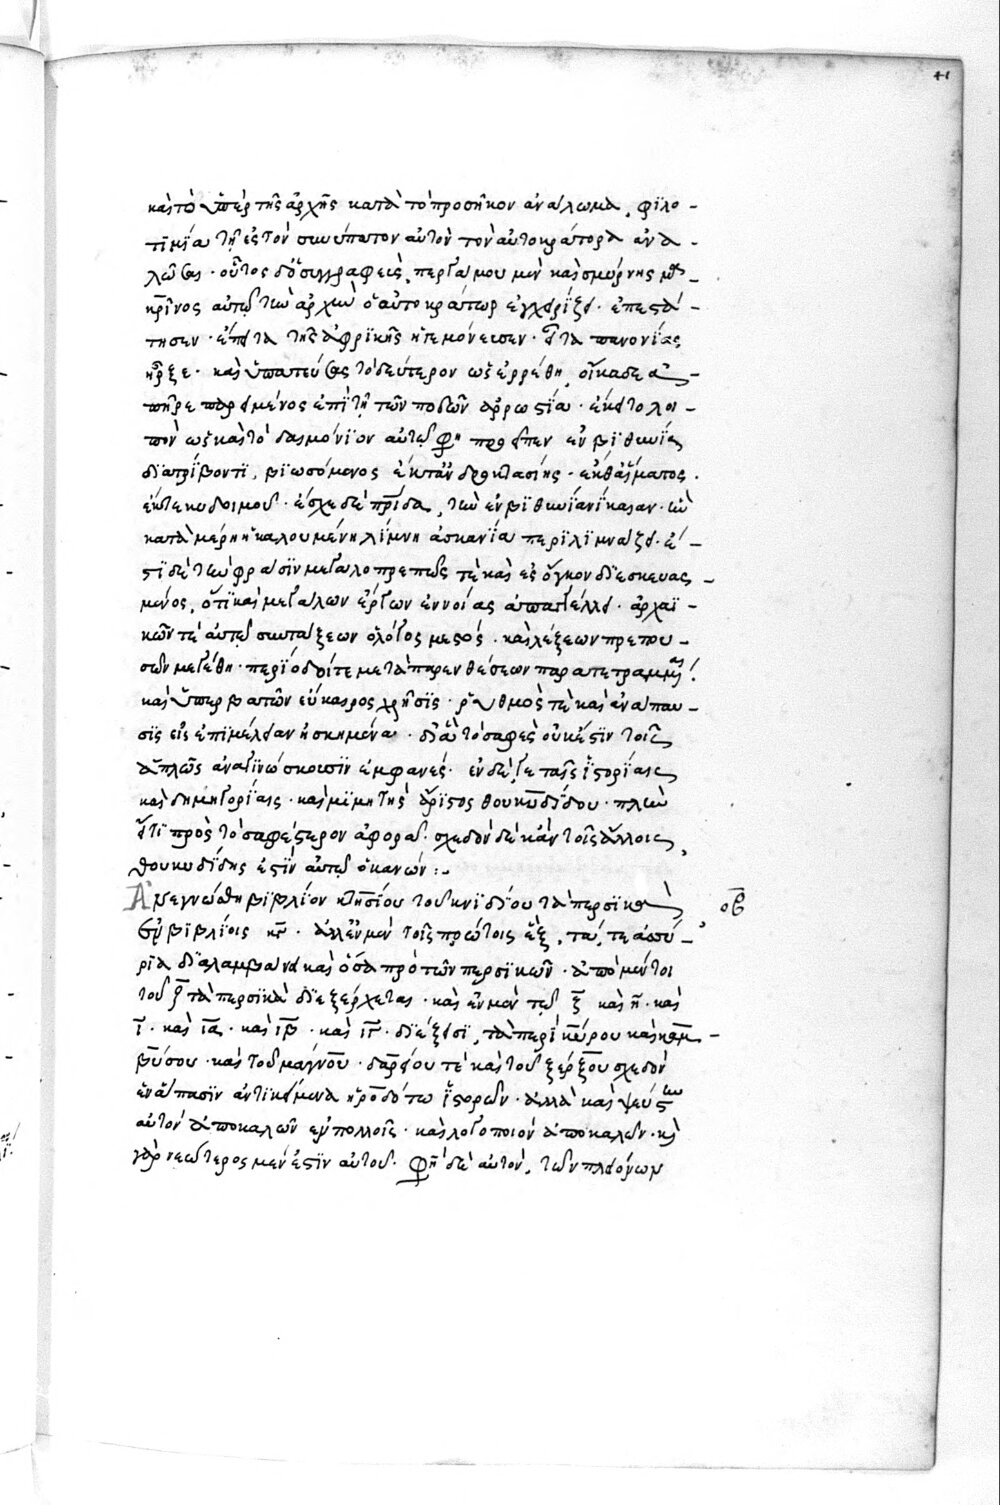 41
καὶ τὸ ὑπὲρ τῆς ἀρχῆς κατὰ τὸ προσῆκον ἀνάλωμα, φιλο-
τιμία τῇ ἐς τὸν συνύπατον αὐτὸν τὸν αὐτοκράτορα ἀνα-
λῶσαι. οὗτος ὁ συγγραφεὺς, περγάμου μὲν καὶ σμύρνης
αὐτῷ τὴν ἀρχὴν ὁ αὐτοκράτωρ ἐγχειρίζει. ἐπεστά-
τησεν. ἔπειτα τῆς ἀφρικῆς ἡγεμόνευσεν. εἶτα πανονίας
ἦρξε. καὶ ὑπατεύσας τὸ δεύτερον ὡς ἐρρέθη, οἴκαδε ἀ-
πῆρε παρειμένος ἐπὶ τῇ τῶν ποδῶν ἀρρωστία. ἐκεῖ τὸ λοι-
πὸν ὡς καὶ τὸ δαιμόνιον αὐτῷ φη προεῖπεν ἐν βιθυνία
διατρίβοντι, βιωσόμενος ἐκ τἀνδροκτασίης. ἐκ θ' αἵματος.
ἐκ τε κυδοιμοῦ. ἔσχε δὲ πρίδα, τὴν ἐν βιθυνία νίκαιαν. ἣν
κατὰ μέρη ἡ καλουμένη λίμνη ἀσκανία περιλιμνάζει. ἔ-
στι δὲ τὴν φράσιν μεγαλοπρεπῶς τὲ καὶ ἐς ὄγκον διεσκευας-
μένος, ὅτι καὶ μεγάλων ἔργων ἐννοίας ἀπαγγέλλει. ἀρχαϊ-
κῶν τὲ αὐτῷ συντάξεων ὁ λόγος μεστός. καὶ λέξεων πρεπου-
σῶν μεγέθη. περίοδοί τε μετὰ παρενθέσεων παρατεταμμέναι.
καὶ ὑπερβατῶν εὔκαιρος χρῆσις. ῥυθμὸς τὲ καὶ ἀνάπαυ-
σις εἰς ἐπιμέλειαν ἠσκημένα. δι' ἃ τὸ σαφὲς οὐκ ἔστιν τοῖς
ἁπλῶς ἀναγινώσκουσιν ἐμφανές. ἐν δέ γε ταῖς ἱστορίαις
καὶ δημηγορίαις. καὶ μιμητὴς ἄριστος θουκυδίδου. πλὴν
εἴ τι πρὸς τὸ σαφέστερον ἀφορᾶ. σχεδὸν δὲ κἀν τοῖς ἄλλοις
θουκυδίδης ἐστὶν αὐτῷ ὁ κανών:-
Ἀνεγνώσθη βιβλίον κτησίου τοῦ κνιδίου τὰ περσικὰ
οβ
ἐν βιβλίοις κγ. ἀλλ' ἐν μὲν τοῖς πρώτοις ἓξ, τά, τε ἀσσύ-
ρια διαλαμβάνει καὶ ὅσα πρὸ τῶν περσικῶν. ἀπὸ μέντοι
τοῦ ζ τὰ περσικὰ διεξέρχεται. καὶ ἐν μὲν τῷ ζ καὶ η. καὶ
ι. καὶ ια. καὶ ιβ. καὶ ιγ. διέξεισι, τὰ περὶ κύρου καὶ καμ-
βύσου. καὶ τοῦ μάγου. δαρείου τὲ καὶ τοῦ ξέρξου σχεδὸν
ἐν ἅπασιν ἀντικείμενα ἡροδότω ἱστορῶν. ἀλλὰ καὶ ψεύστην
αὐτὸν ἀποκαλῶν ἐν πολλοῖς. καὶ λογοποιὸν ἀποκαλῶν. καὶ
γὰρ νεώτερος μέν ἐστιν αὐτοῦ. φησὶ δὲ αὐτὸν, τῶν πλειόνων